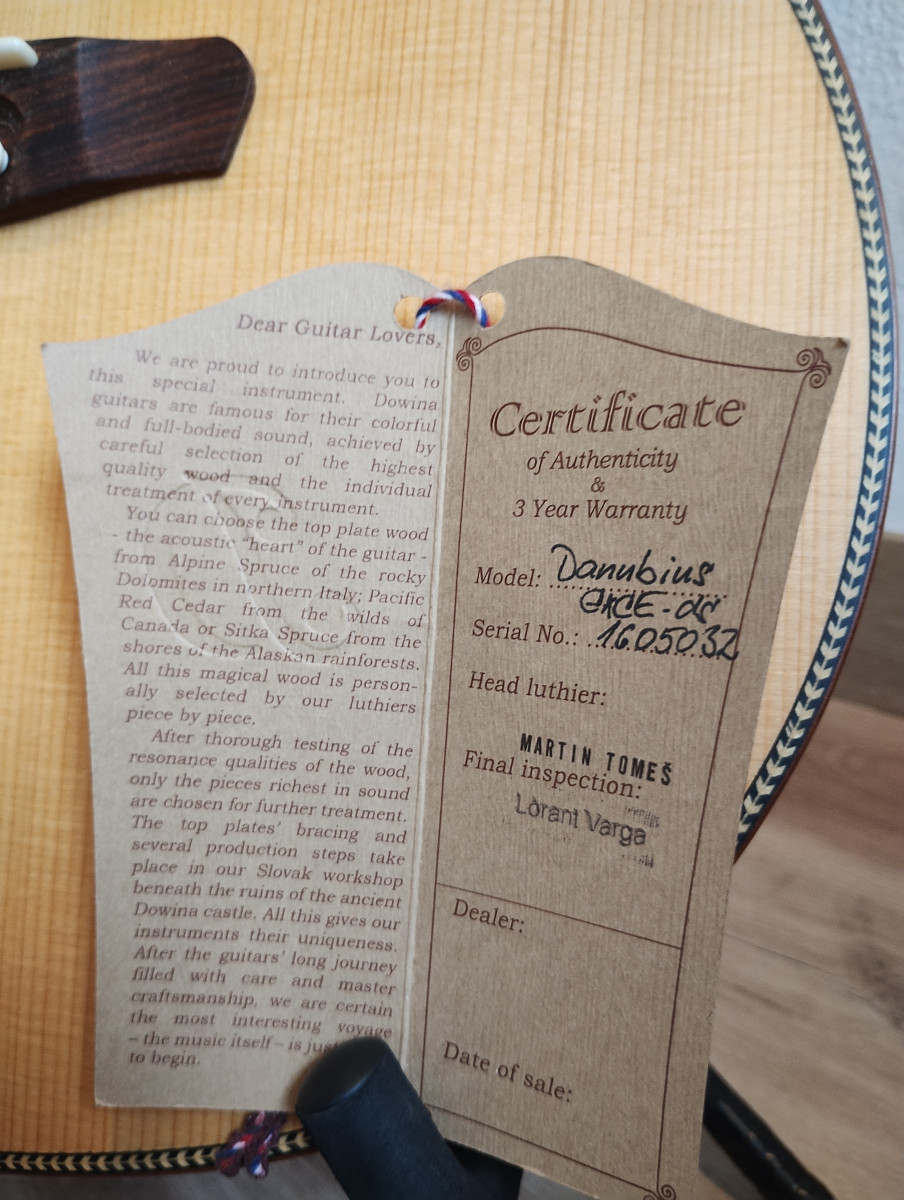 Dear Guitar Lovers,
We are proud to introduce you to
this special instrument. Dowina
guitars are famous for their colorful
and full-bodied sound, achieved by
careful selection of the highest
quality wood and the individual
treatment of every instrument.
You can choose the top plate wood
- the acoustic “heart” of the guitar -
from Alpine Spruce of the rocky
Dolomites in northern Italy; Pacific
Red Cedar from the wilds of
Canada or Sitka Spruce from the
shores of the Alaskan rainforests.
All this magical wood is person-
ally selected by our luthiers
piece by piece.
After thorough testing of the
resonance qualities of the wood,
only the pieces richest in sound
are chosen for further treatment.
The top plates’ bracing and
several production steps take
place in our Slovak workshop
beneath the ruins of the ancient
Dowina castle. All this gives our
instruments their uniqueness.
After the guitars’ long journey
filled with care and master
craftsmanship, we are certain
the most interesting voyage
– the music itself – is
to begin.
Certificate
of Authenticity
&
3 Year Warranty
Model: Danubius
Serial No.: 1605032
Head luthier:
MARTIN TOMEŠ
Final inspection:
Lorant Varga
Dealer:
Date of sale: